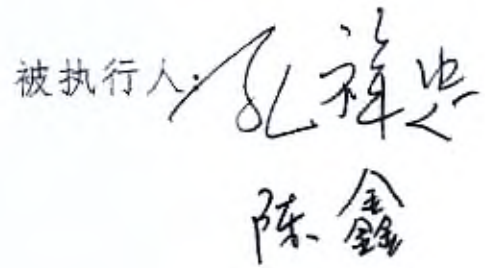 被执行人:孔祥忠
陈鑫